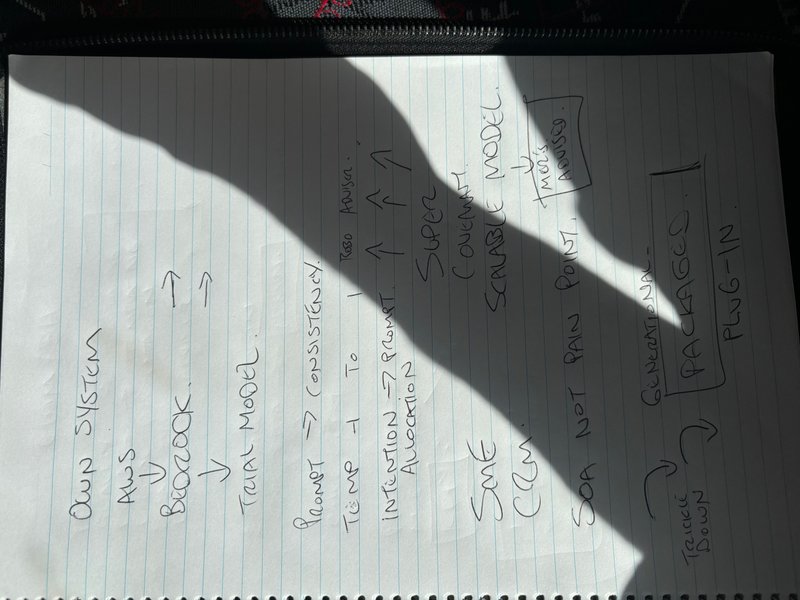 OWN SYSTEM
AWS
↓
BEDROCK. →
↓ →
TRIAL MODEL.
PROMPT → CONSISTENCY.
TEMP -1 TO 1 ROBO ADVISOR.
INTENTION → PROMPT. → → →
ALLOCATION → →
SUPER
SME COVENANT.
CRM. SCALABLE MODEL.
↓
SOA NOT PAIN POINT.
ADVISED.
GENERATIONAL -
TRICKLE
DOWN
PACKAGED.
PLUG-IN.